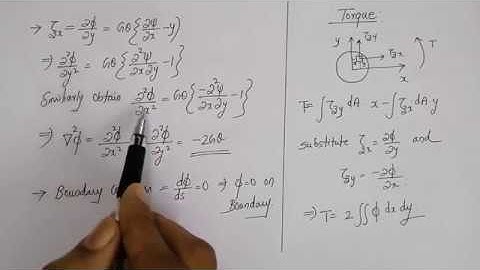 → τzx = ∂ϕ/∂y = Gθ{∂ψ/∂x - y}
⇒ ∂²ϕ/∂y² = Gθ{∂²ψ/∂x∂y - 1}
Similarly obtain ∂²ϕ/∂x² = Gθ{-∂²ψ/∂x∂y - 1}
⇒ ∇²ϕ = ∂²ϕ/∂x² ∂²ϕ/∂y² = -2Gθ
→ Boundary = dϕ/ds = 0 ⇒ ϕ=0 on
Boundary
Torque:
y τzy
τzx T
x
T = ∫τzy dA x - ∫τzx dA y
substitute τzx = ∂ϕ/∂y and
τzy = -∂ϕ/∂x
⇒ T = 2∬ϕ dx dy